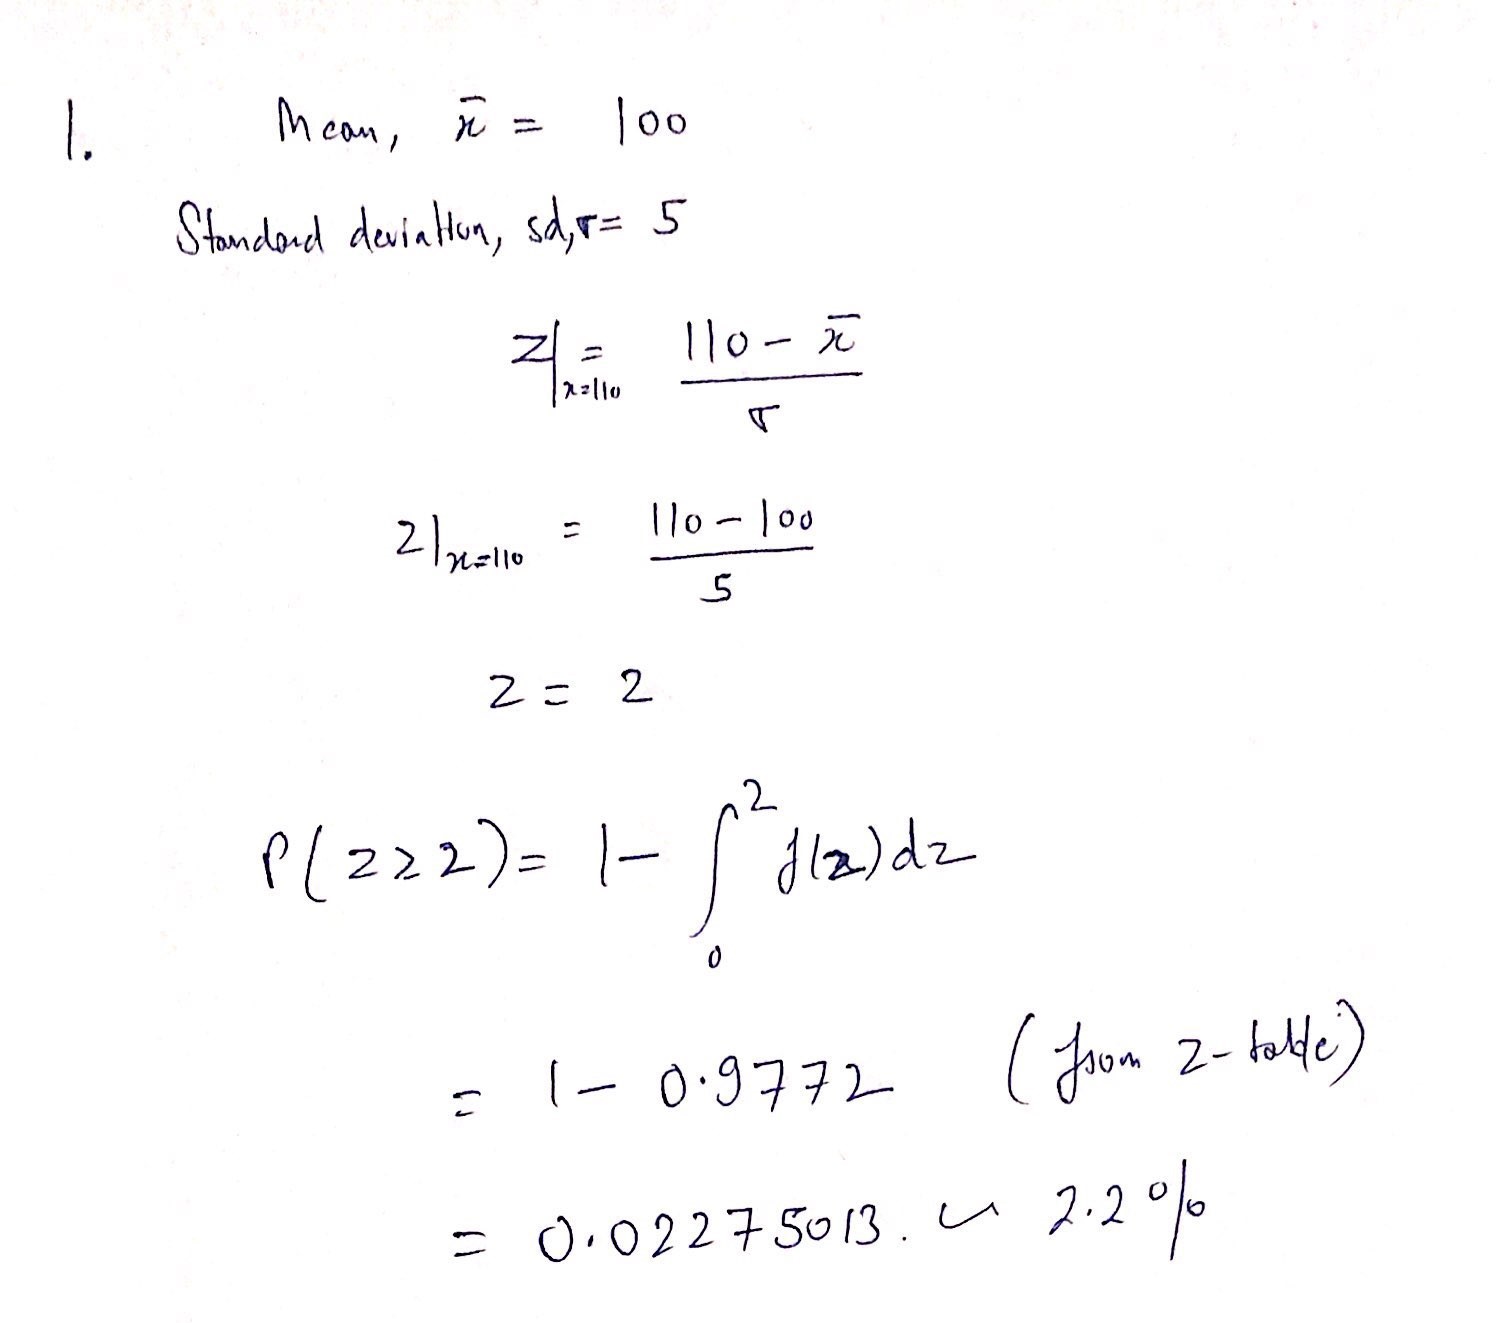 1. Mean, x̄ = 100
Standard deviation, sd, σ = 5
z|x=110 = (110 - x̄) / σ
z|x=110 = (110 - 100) / 5
z = 2
P(z ≥ 2) = 1 - ∫₀² f(z) dz
= 1 - 0.9772 (from z-table)
= 0.02275013. ~ 2.2 %